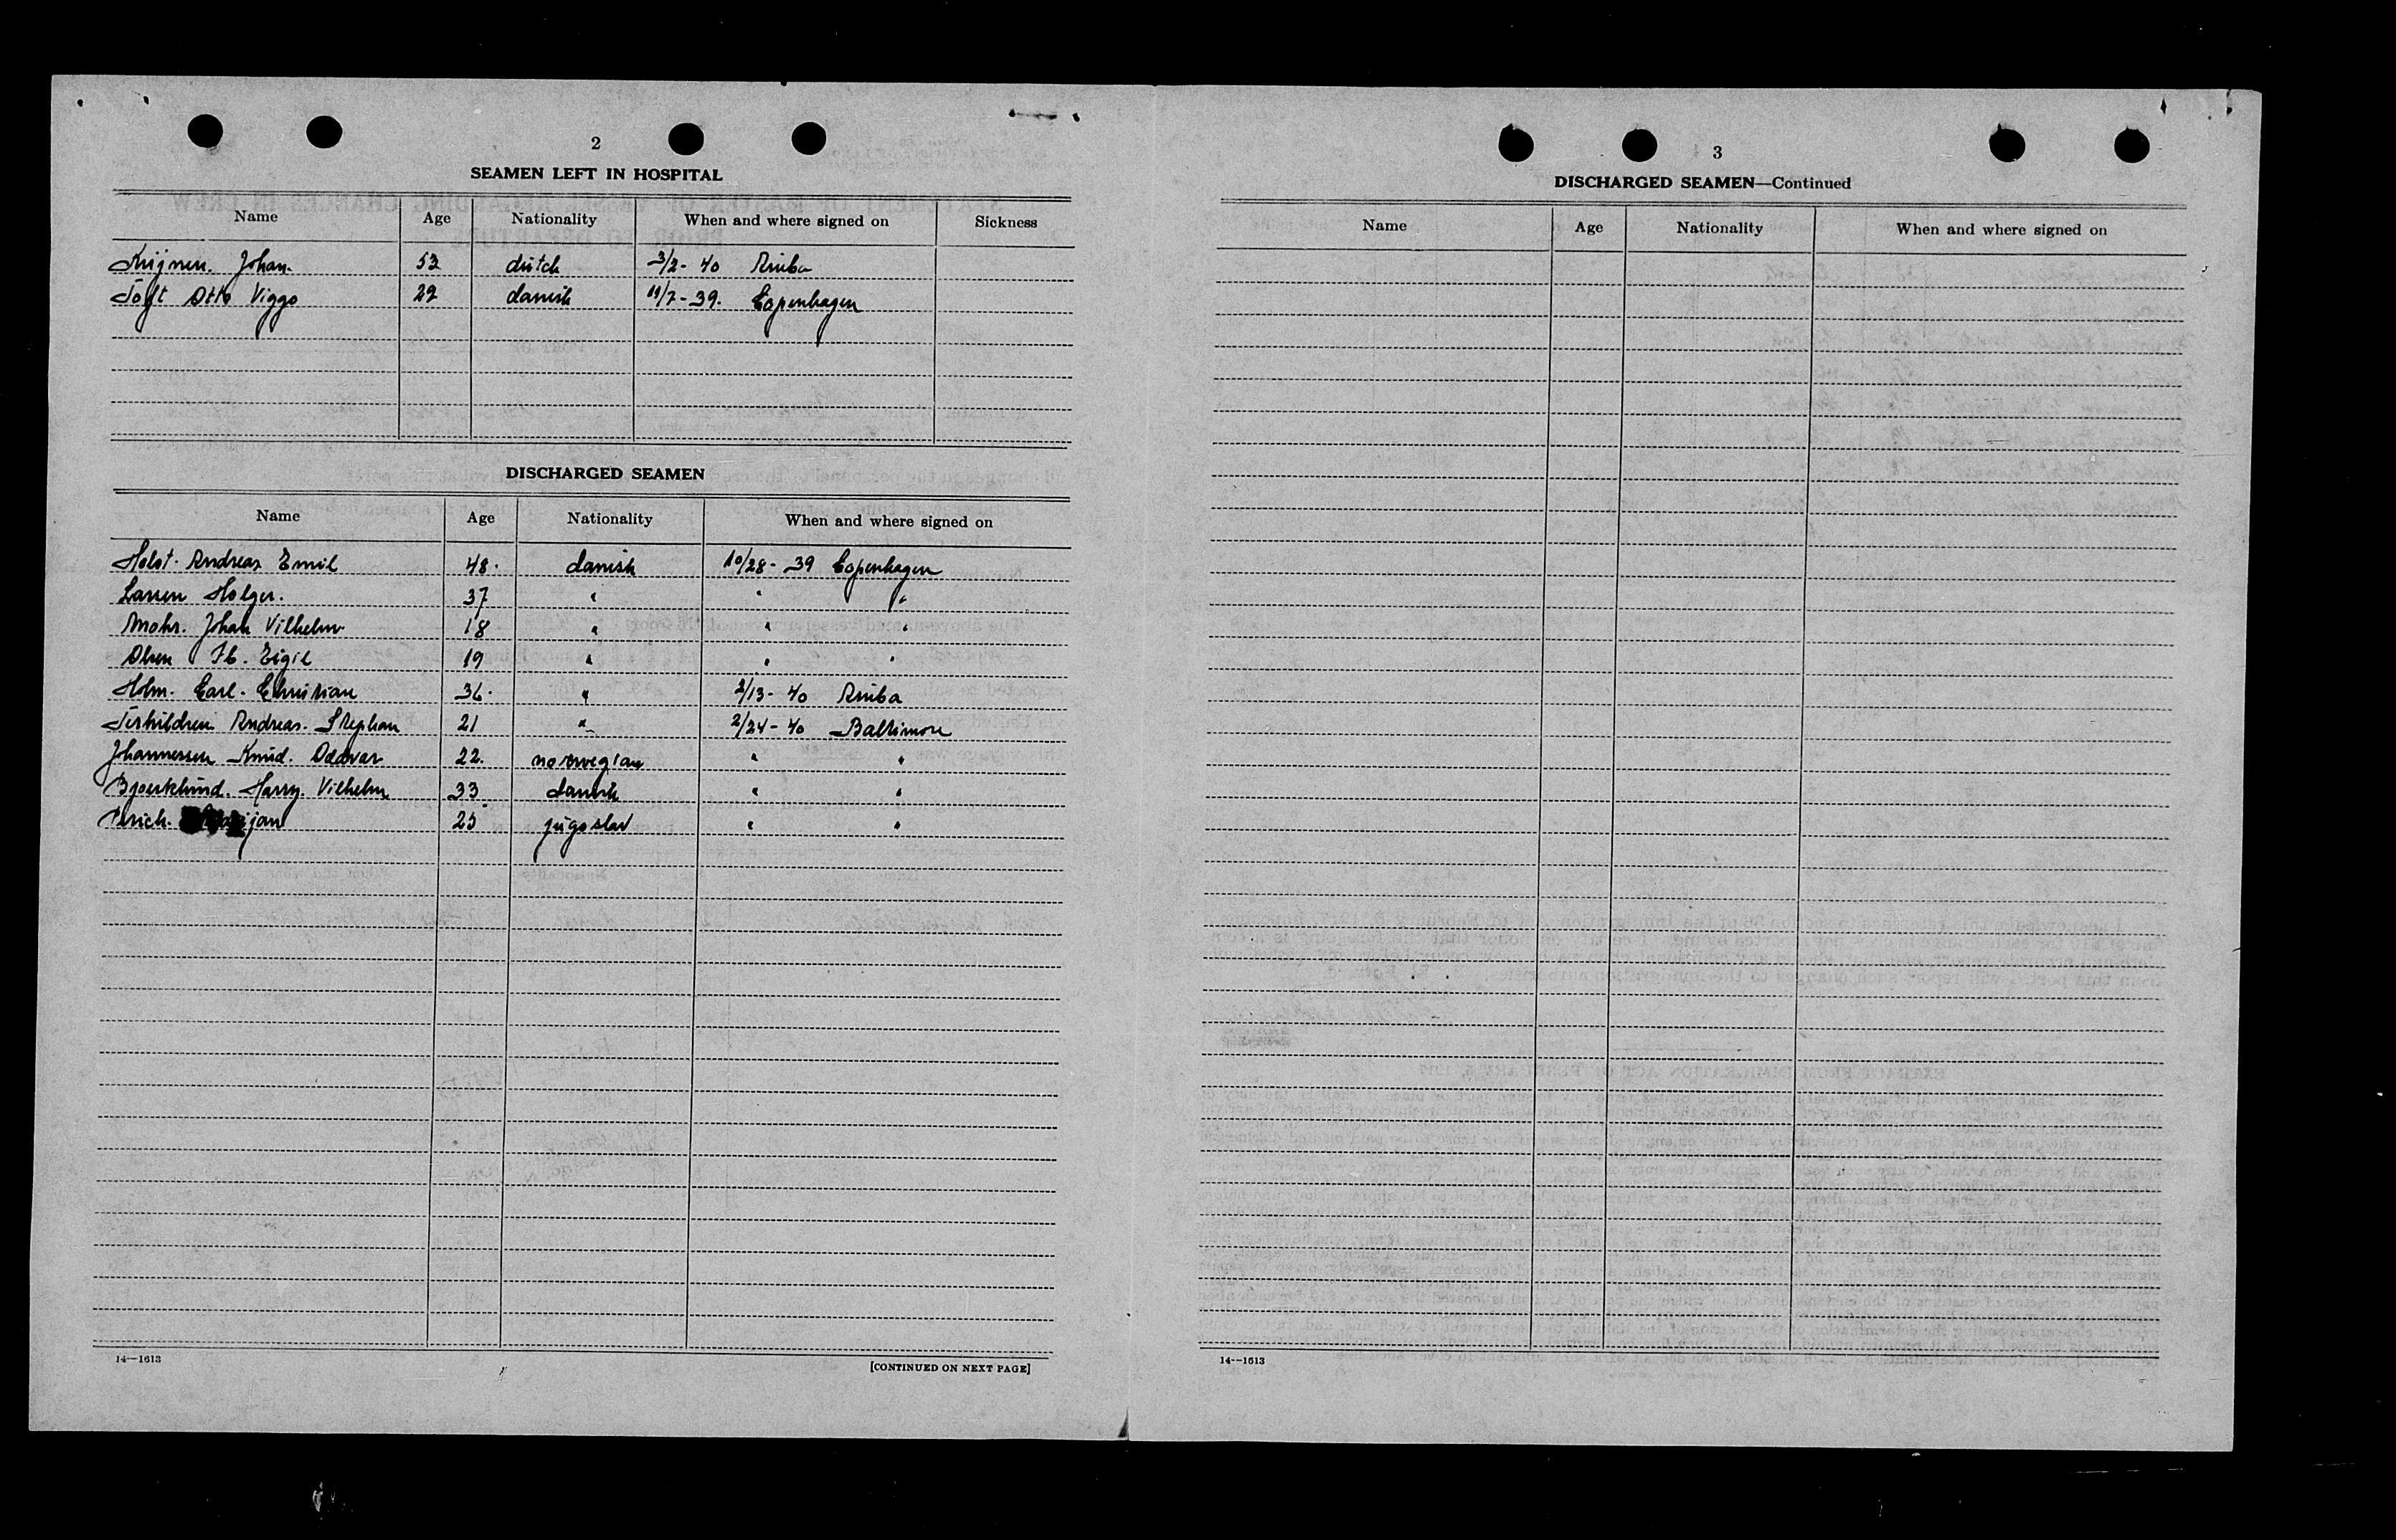 2
SEAMEN LEFT IN HOSPITAL
Name Age Nationality When and where signed on Sickness
Krijnen. Johan. 53 dutch 3/2-40 Aruba
Toft Otto Viggo 29 danish 11/7-39. Copenhagen
DISCHARGED SEAMEN
Name Age Nationality When and where signed on
Holst. Andreas Emil 48. danish 10/28-39 Copenhagen
Larsen Holger. 37 " " "
Mohr. Johan Vilhelm 18 " " "
Olsen Ib. Eigil 19 " " "
Holm. Carl. Christian 36. " 2/13-40 Aruba
Andreas. Stephan 21 " 2/24-40 Baltimore
Johannessen Knud. Oddvar 22. norwegian " "
Bjoerklund. Harry. Vilhelm 33 danish " "
25 jugoslav " "
14—1613
[CONTINUED ON NEXT PAGE]
3
DISCHARGED SEAMEN—Continued
Name Age Nationality When and where signed on
14—1613